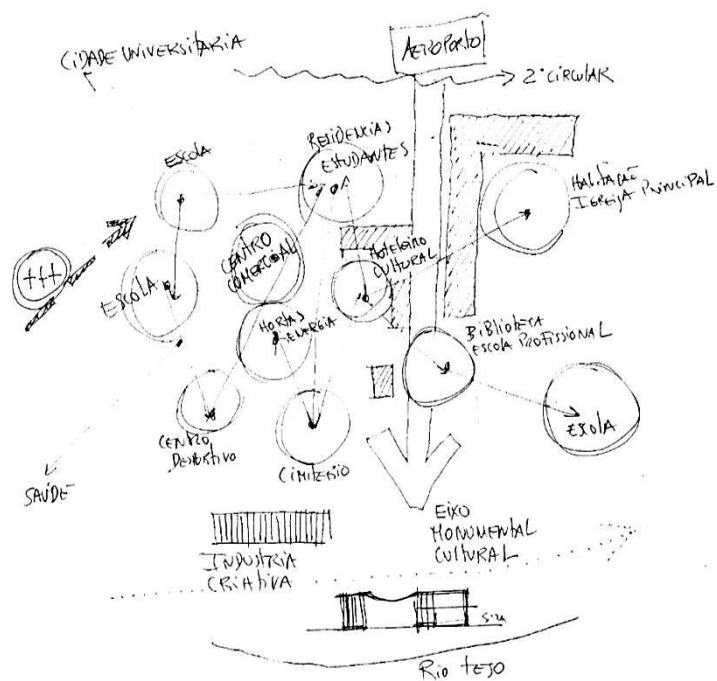 CIDADE UNIVERSITARIA
AEROPORTO
2ª CIRCULAR
ESCOLA
RESIDENCIAS
ESTUDANTES
HABITAÇÃO
IGREJA PRINCIPAL
+++
ESCOLA
CENTRO
COMERCIAL
HOTELEIRO
CULTURAL
HORTAS
ENERGIA
BIBLIOTECA
ESCOLA PROFISSIONAL
CENTRO
DESPORTIVO
CIMITERIO
ESCOLA
SAÚDE
INDUSTRIA
CRIATIVA
EIXO
MONUMENTAL
CULTURAL
RIO TEJO